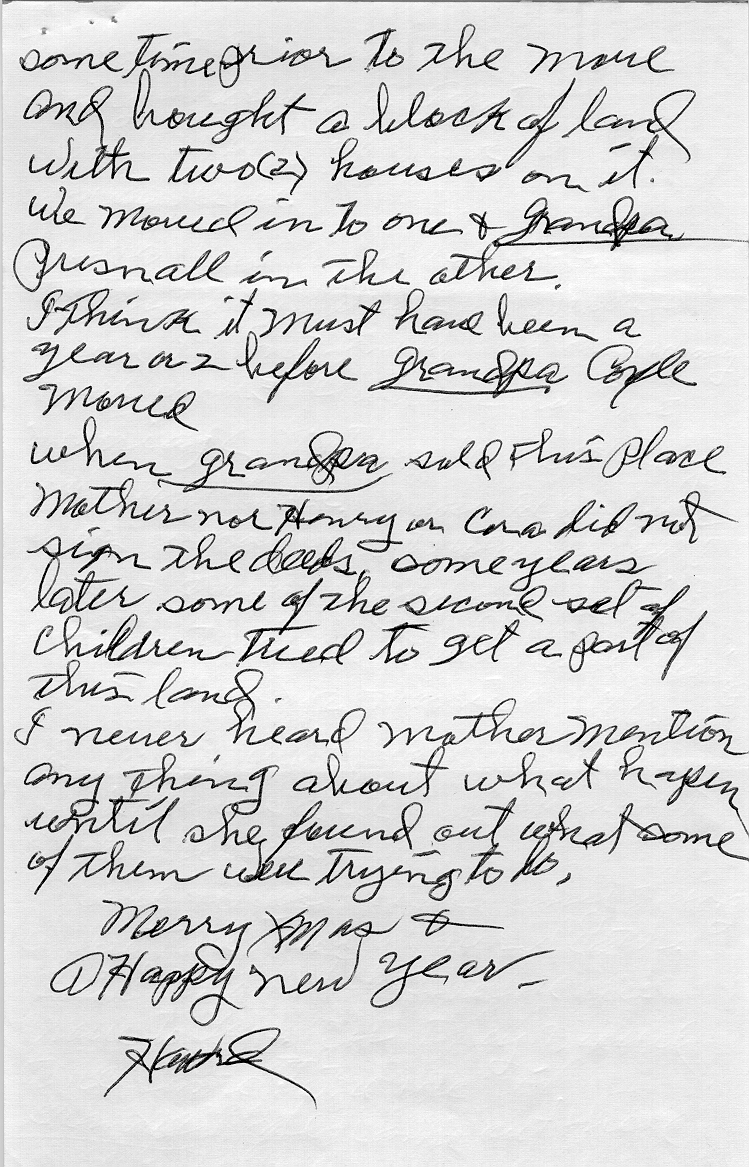 some time prior to the move
and bought a block of land
with two (2) houses on it.
We moved in to one & grandpa
Presnall in the other.
I think it must have been a
year or 2 before grandpa Cogle
moved
when grandpa sold this place
Mother nor Henry or Cora did not
sign the deeds, some years
later some of the second set of
children tried to get a part of
this land.
I never heard mother mention
any thing about what hapen
until she found out what some
of them were trying to do.
Merry Xmas &
A Happy new year